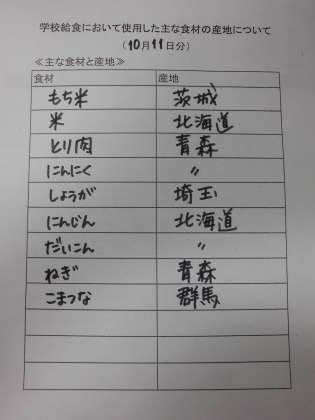 学校給食において使用した主な食材の産地について
(10月11日分)
≪主な食材と産地≫
食材 産地
もち米 茨城
米 北海道
とり肉 青森
にんにく 〃
しょうが 埼玉
にんじん 北海道
だいこん 〃
ねぎ 青森
こまつな 群馬